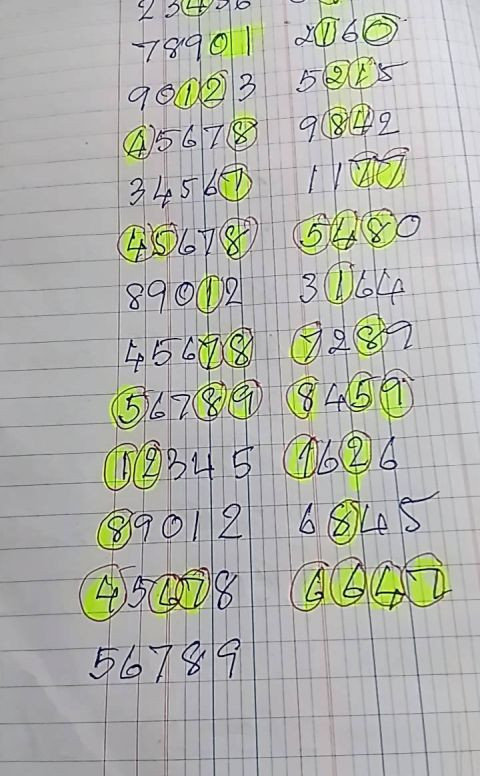 23456
78901 2160
90123 5215
45678 9842
34567 1177
45678 5480
89012 3164
45678 7289
56789 8459
12345 1626
89012 6845
45678 6647
56789